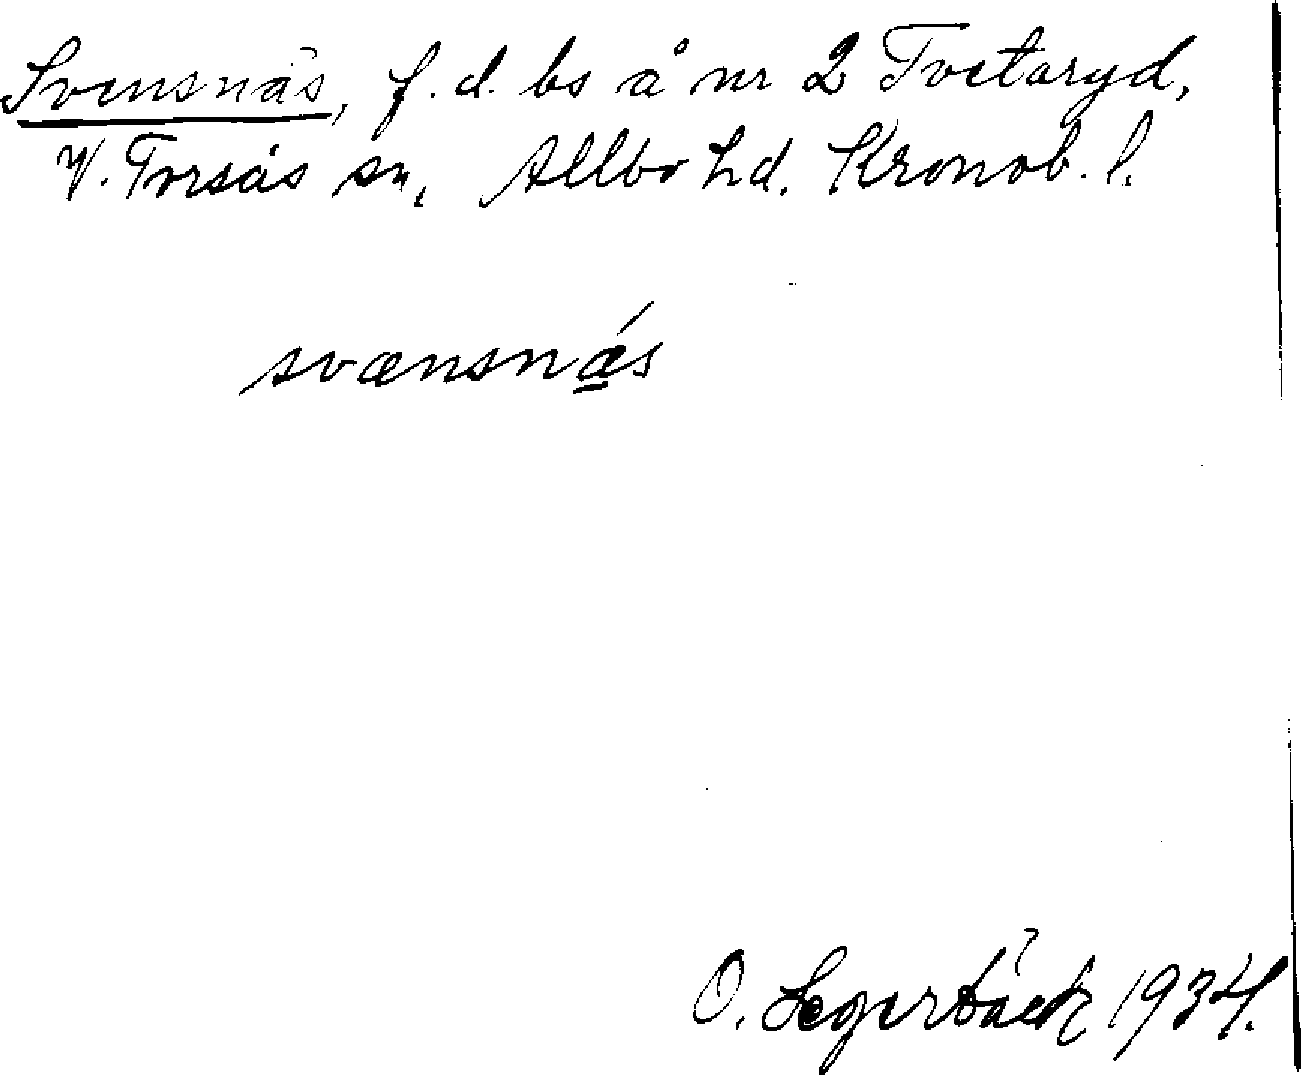 Svensnäs, f. d. bs å nr 2 Tvetaryd,
V. Torsås sn, Allbo hd. Kronob. l.
svænsnǽs
O. Segerbäck 1934.